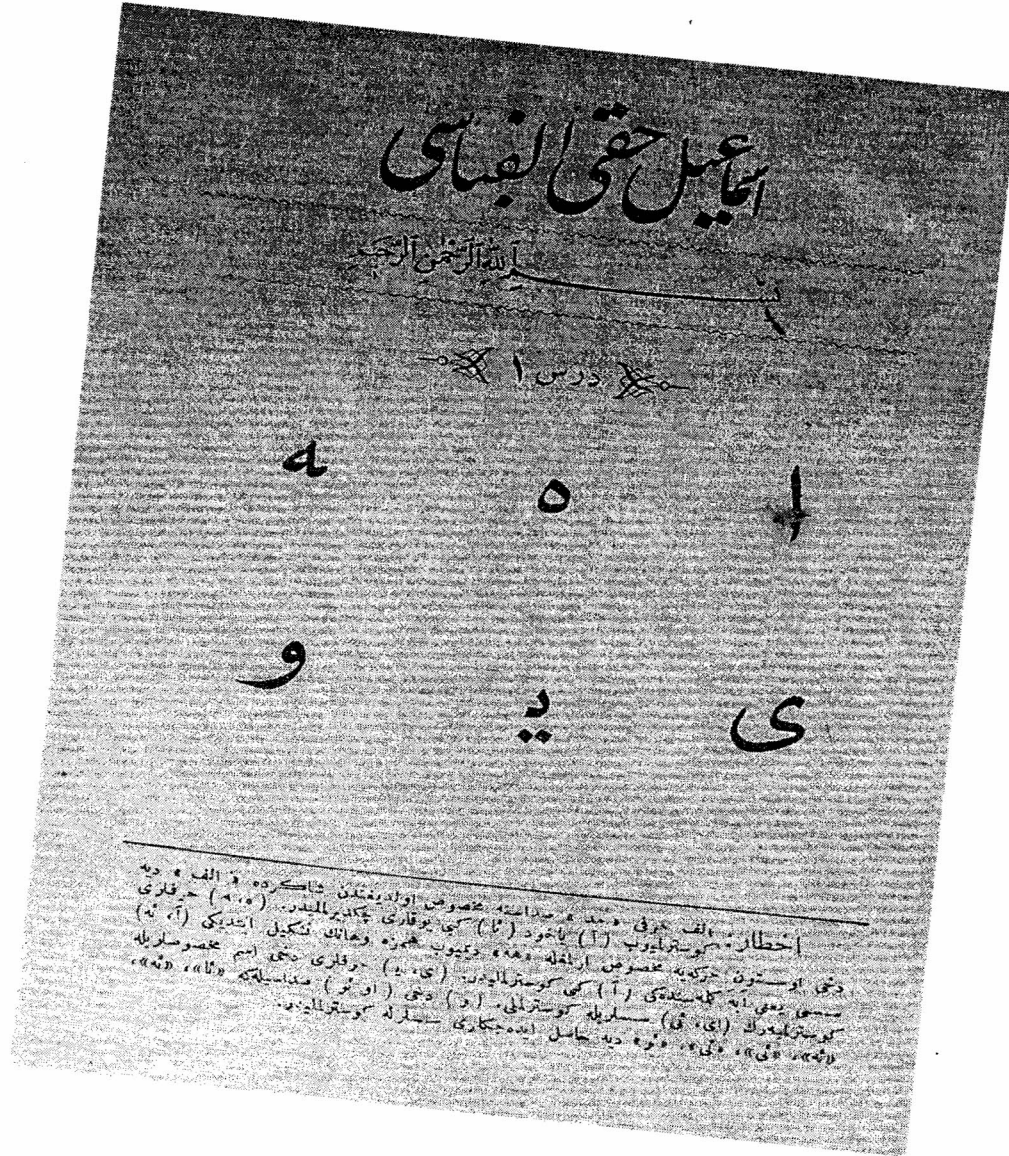 اسماعیل حقی الفباسی
بسم الله الرحمن الرحیم
درس ۱
ا ه ـه
ی یـ و
اخطار: الف حرفی «مد» صداسنه مخصوص اولدیغندن شاكرده «الف» دیه
كوسترلمیوب (آ) یاخود (ئا) كبی یوقاری چكدیرلملیدر. (ه، ـه) حرفلری
دخی اوستون حركه‌یه مخصوص اولمغله «هه» دینمیوب همزه وهانك تشكیل ایتدیكی (أ، ئه)
سسی یعنی كله‌سنده‌كی (أ) كبی كوسترلملیدر. (ی، یـ) حرفلری دخی اسم مخصوصلریله
كوسترلمیه‌رك (ای، ئی) سسلریله كوسترلملی. (و) دخی (او ئو) صداسیله‌كه «ئا»، «ئه»،
«ئه»، «ئی»، «ئی»، «ئو» دیه حاصل ایده‌جكلری سسلرله كوسترلملیدر.